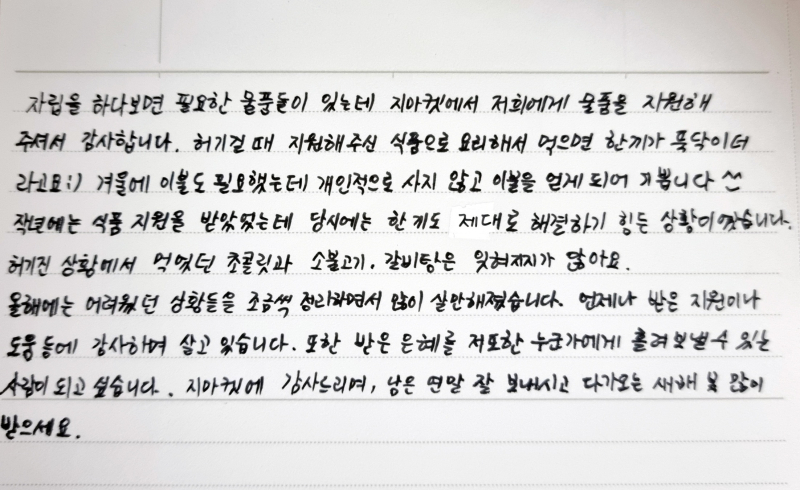 자립을 하다보면 필요한 물품들이 있는데 지마켓에서 저희에게 물품을 지원해
주셔서 감사합니다. 허기질 때 지원해주신 식품으로 요리해서 먹으면 한끼가 뚝닥이더
라고요:) 겨울에 이불도 필요했는데 개인적으로 사지 않고 이불을 얻게 되어 기쁩니다 ^^
작년에는 식품 지원을 받았었는데 당시에는 한끼도 제대로 해결하기 힘든 상황이었습니다.
허기진 상황에서 먹었던 초콜릿과 소불고기, 갈비탕은 잊혀지지가 않아요.
올해에는 어려웠던 상황들을 조금씩 정리하면서 많이 살만해졌습니다. 언제나 받은 지원이나
도움 등에 감사하며 살고 있습니다. 또한 받은 은혜를 저 또한 누군가에게 흘려보낼 수 있는
사람이 되고 싶습니다. 지마켓에 감사드리며, 남은 연말 잘 보내시고 다가오는 새해 복 많이
받으세요.